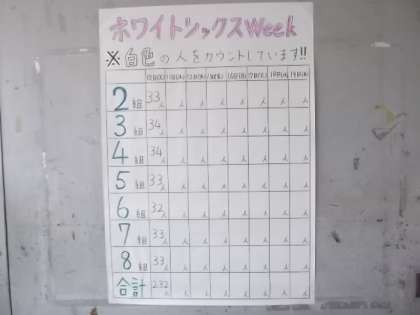 ホワイトシックスWeek
※白色の人をカウントしています!!
2組 33人 人 人 人 人 人 人 人
3組 34人 人 人 人 人 人 人 人
4組 34人 人 人 人 人 人 人 人
5組 33人 人 人 人 人 人 人 人
6組 32人 人 人 人 人 人 人 人
7組 33人 人 人 人 人 人 人 人
8組 33人 人 人 人 人 人 人 人
合計 232人 人 人 人 人 人 人 人